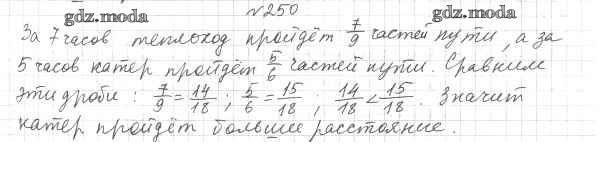 №250
gdz.moda gdz.moda
За 7 часов теплоход пройдёт 7/9 частей пути, а за
5 часов катер пройдёт 5/6 частей пути. Сравним
эти дроби: 7/9 = 14/18; 5/6 = 15/18; 14/18 < 15/18. Значит
катер пройдёт большее расстояние.